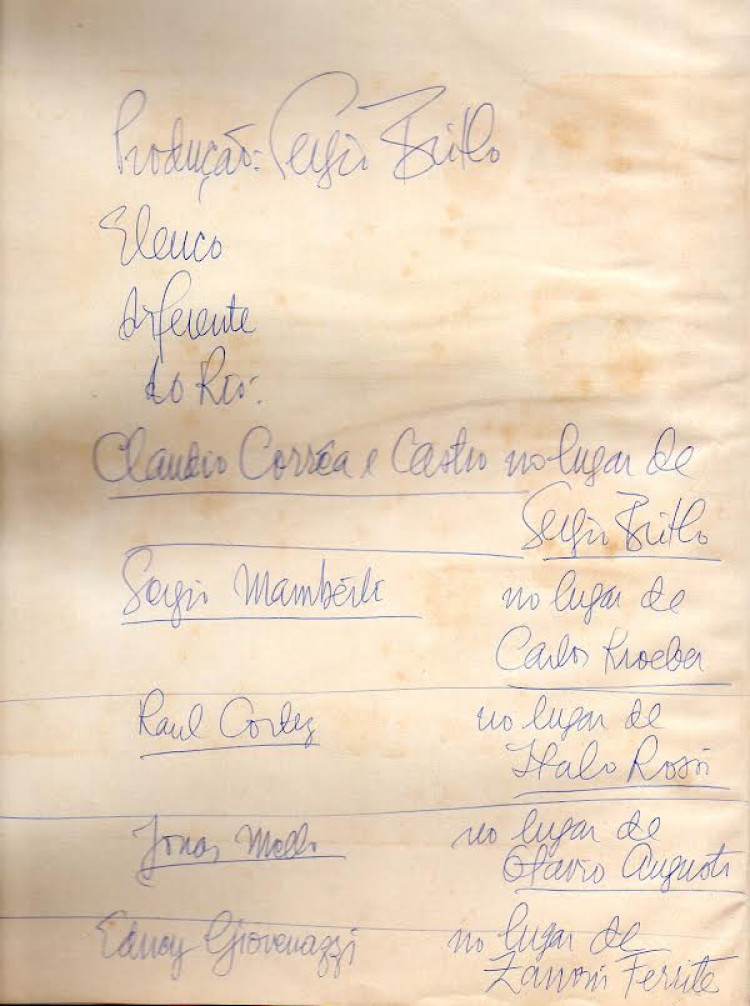 Produção: Sergio Britto
Elenco
diferente
do Rio:
Claudio Corrêa e Castro no lugar de
Sergio Britto
Sergio Mambérti no lugar de
Carlos Kroeber
Raul Cortez no lugar de
Italo Rossi
Jonas Mello no lugar de
Otavio Augusto
Edney Giovenazzi no lugar de
Zanoni Ferrite